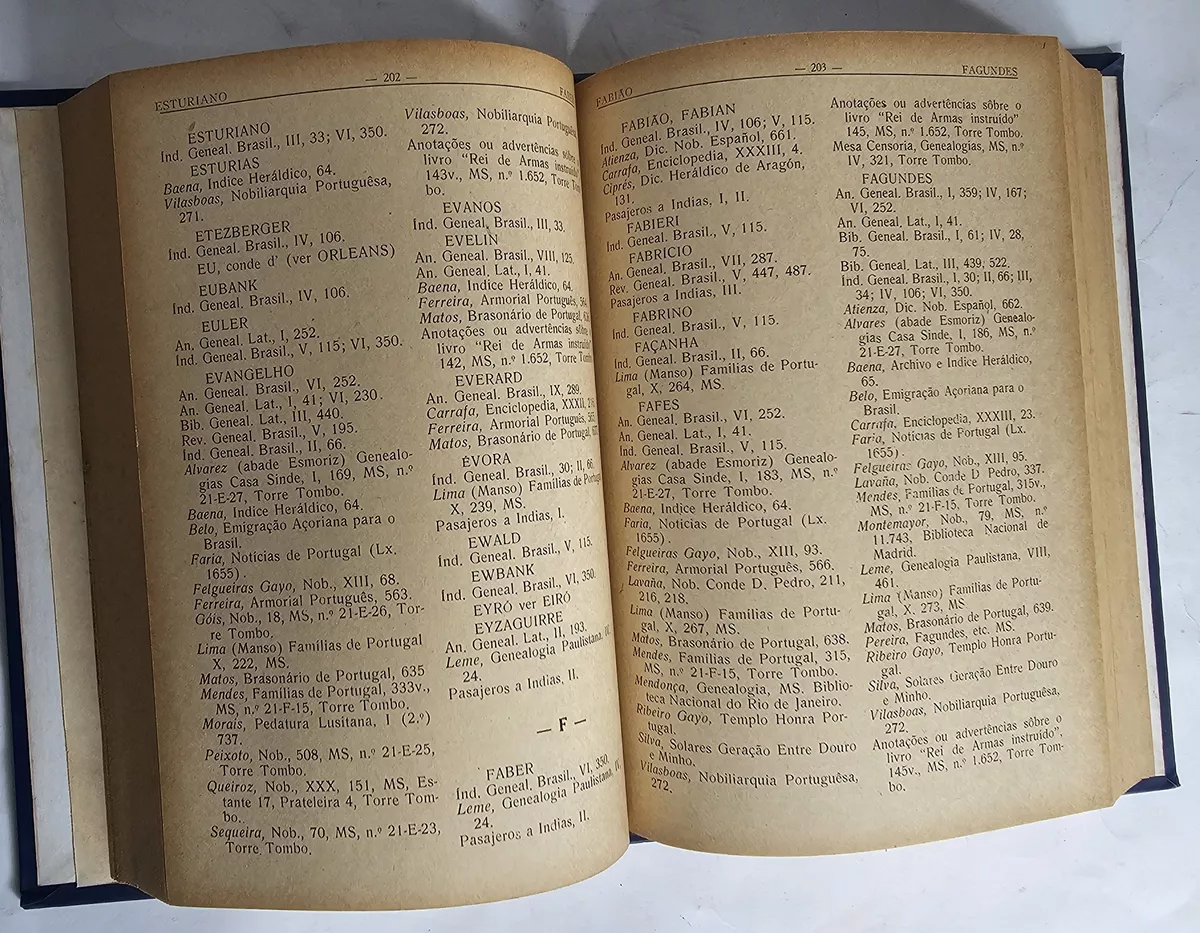 — 202 —
ESTURIANO
ESTURIANO
Ind. Geneal. Brasil., III, 33; VI, 350.
ESTURIAS
Baena, Indice Heráldico, 64.
Vilasboas, Nobiliarquia Portuguêsa,
271.
ETEZBERGER
Ind. Geneal. Brasil., IV, 106.
EU, conde d' (ver ORLEANS)
EUBANK
Ind. Geneal. Brasil., IV, 106.
EULER
An. Geneal. Lat., I, 252.
Ind. Geneal. Brasil., V, 115; VI, 350.
EVANGELHO
An. Geneal. Brasil., VI, 252.
An. Geneal. Lat., I, 41; VI, 230.
Bib. Geneal. Lat., III, 440.
Rev. Geneal. Brasil., V, 195.
Ind. Geneal. Brasil., II, 66.
Alvarez (abade Esmoriz) Genealo-
gias Casa Sinde, I, 169, MS, n.º
21-E-27, Torre Tombo.
Baena, Indice Heráldico, 64.
Belo, Emigração Açoriana para o
Brasil.
Faria, Notícias de Portugal (Lx.
1655).
Felgueiras Gayo, Nob., XIII, 68.
Ferreira, Armorial Português, 563.
Góis, Nob., 18, MS, n.º 21-E-26, Tor-
re Tombo.
Lima (Manso) Famílias de Portugal
X, 222, MS.
Matos, Brasonário de Portugal, 635
Mendes, Famílias de Portugal, 333v.,
MS, n.º 21-F-15, Torre Tombo.
Morais, Pedatura Lusitana, I (2.º)
737.
Peixoto, Nob., 508, MS, n.º 21-E-25,
Torre Tombo.
Queiroz, Nob., XXX, 151, MS, Es-
tante 17, Prateleira 4, Torre Tom-
bo.
Sequeira, Nob., 70, MS, n.º 21-E-23,
Torre Tombo.
Vilasboas, Nobiliarquia
272.
Anotações ou advertências sôbre
livro "Rei de Armas instruído"
143v., MS, n.º 1.652, Torre
bo.
EVANOS
Ind. Geneal. Brasil., III, 33.
EVELIN
An. Geneal. Brasil., VIII, 125.
An. Geneal. Lat., I, 41.
Baena, Indice Heráldico, 64.
Ferreira, Armorial Português,
Matos, Brasonário de Portugal,
Anotações ou advertências sôbre
livro "Rei de Armas instruído"
142, MS, n.º 1.652, Torre
EVERARD
An. Geneal. Brasil., IX, 289.
Carrafa, Enciclopedia, XXXII,
Ferreira, Armorial Português,
Matos, Brasonário de Portugal,
ÉVORA
Ind. Geneal. Brasil., 30; II, 66.
Lima (Manso) Famílias de
X, 239, MS.
Pasajeros a Indias, I.
EWALD
Ind. Geneal. Brasil., V, 115.
EWBANK
Ind. Geneal. Brasil., VI, 350.
EYRÓ ver EIRÓ
EYZAGUIRRE
An. Geneal. Lat., II, 193.
Leme, Genealogia Paulistana,
24.
Pasajeros a Indias, II.
— F —
FABER
Ind. Geneal. Brasil., VI, 350.
Leme, Genealogia Paulistana, IV,
24.
Pasajeros a Indias, II.
FABIÃO
— 203 —
FAGUNDES
FABIÃO, FABIAN
Ind. Geneal. Brasil., IV, 106; V, 115.
Atienza, Dic. Nob. Español, 661.
Carrafa, Enciclopedia, XXXIII, 4.
Ciprés, Dic. Heráldico de Aragón,
131.
Pasajeros a Indias, I, II.
FABIERI
Ind. Geneal. Brasil., V, 115.
FABRICIO
An. Geneal. Brasil., VII, 287.
Rev. Geneal. Brasil., V, 447, 487.
Pasajeros a Indias, III.
FABRINO
Ind. Geneal. Brasil., V, 115.
FAÇANHA
Ind. Geneal. Brasil., II, 66.
Lima (Manso) Famílias de Portu-
gal, X, 264, MS.
FAFES
An. Geneal. Brasil., VI, 252.
An. Geneal. Lat., I, 41.
Ind. Geneal. Brasil., V, 115.
Alvarez (abade Esmoriz) Genealo-
gias Casa Sinde, I, 183, MS, n.º
21-E-27, Torre Tombo.
Baena, Indice Heráldico, 64.
Faria, Notícias de Portugal (Lx.
1655).
Felgueiras Gayo, Nob., XIII, 93.
Ferreira, Armorial Português, 566.
Lavaña, Nob. Conde D. Pedro, 211,
216, 218.
Lima (Manso) Famílias de Portu-
gal, X, 267, MS.
Matos, Brasonário de Portugal, 638.
Mendes, Famílias de Portugal, 315,
MS, n.º 21-F-15, Torre Tombo.
Mendonça, Genealogia, MS. Biblio-
teca Nacional do Rio de Janeiro.
Ribeiro Gayo, Templo Honra Por-
tugal.
Silva, Solares Geração Entre Douro
e Minho.
Vilasboas, Nobiliarquia Portuguêsa,
272.
Anotações ou advertências sôbre o
livro "Rei de Armas instruído"
145, MS, n.º 1.652, Torre Tombo.
Mesa Censoria, Genealogias, MS, n.º
IV, 321, Torre Tombo.
FAGUNDES
An. Geneal. Brasil., I, 359; IV, 167;
VI, 252.
An. Geneal. Lat., I, 41.
Bib. Geneal. Brasil., I, 61; IV, 28,
75.
Bib. Geneal. Lat., III, 439, 522.
Ind. Geneal. Brasil., I, 30; II, 66; III,
34; IV, 106; VI, 350.
Atienza, Dic. Nob. Español, 662.
Alvares (abade Esmoriz) Genealo-
gias Casa Sinde, I, 186, MS, n.º
21-E-27, Torre Tombo.
Baena, Archivo e Indice Heráldico,
65.
Belo, Emigração Açoriana para o
Brasil.
Carrafa, Enciclopedia, XXXIII, 23.
Faria, Notícias de Portugal (Lx.
1655).
Felgueiras Gayo, Nob., XIII, 95.
Lavaña, Nob. Conde D Pedro, 337.
Mendes, Famílias de Portugal, 315v.,
MS, n.º 21-F-15, Torre Tombo.
Montemayor, Nob., 79, MS, n.º
11.743, Biblioteca Nacional de
Madrid.
Leme, Genealogia Paulistana, VIII,
461.
Lima (Manso) Famílias de Portu-
gal, X. 273, MS.
Matos, Brasonário de Portugal, 639.
Pereira, Fagundes, etc. MS.
Ribeiro Gayo, Templo Honra Portu-
gal.
Silva, Solares Geração Entre Douro
e Minho.
Vilasboas, Nobiliarquia Portuguêsa,
272.
Anotações ou advertências sôbre o
livro "Rei de Armas instruído",
145v., MS, n.º 1.652, Torre Tom-
bo.